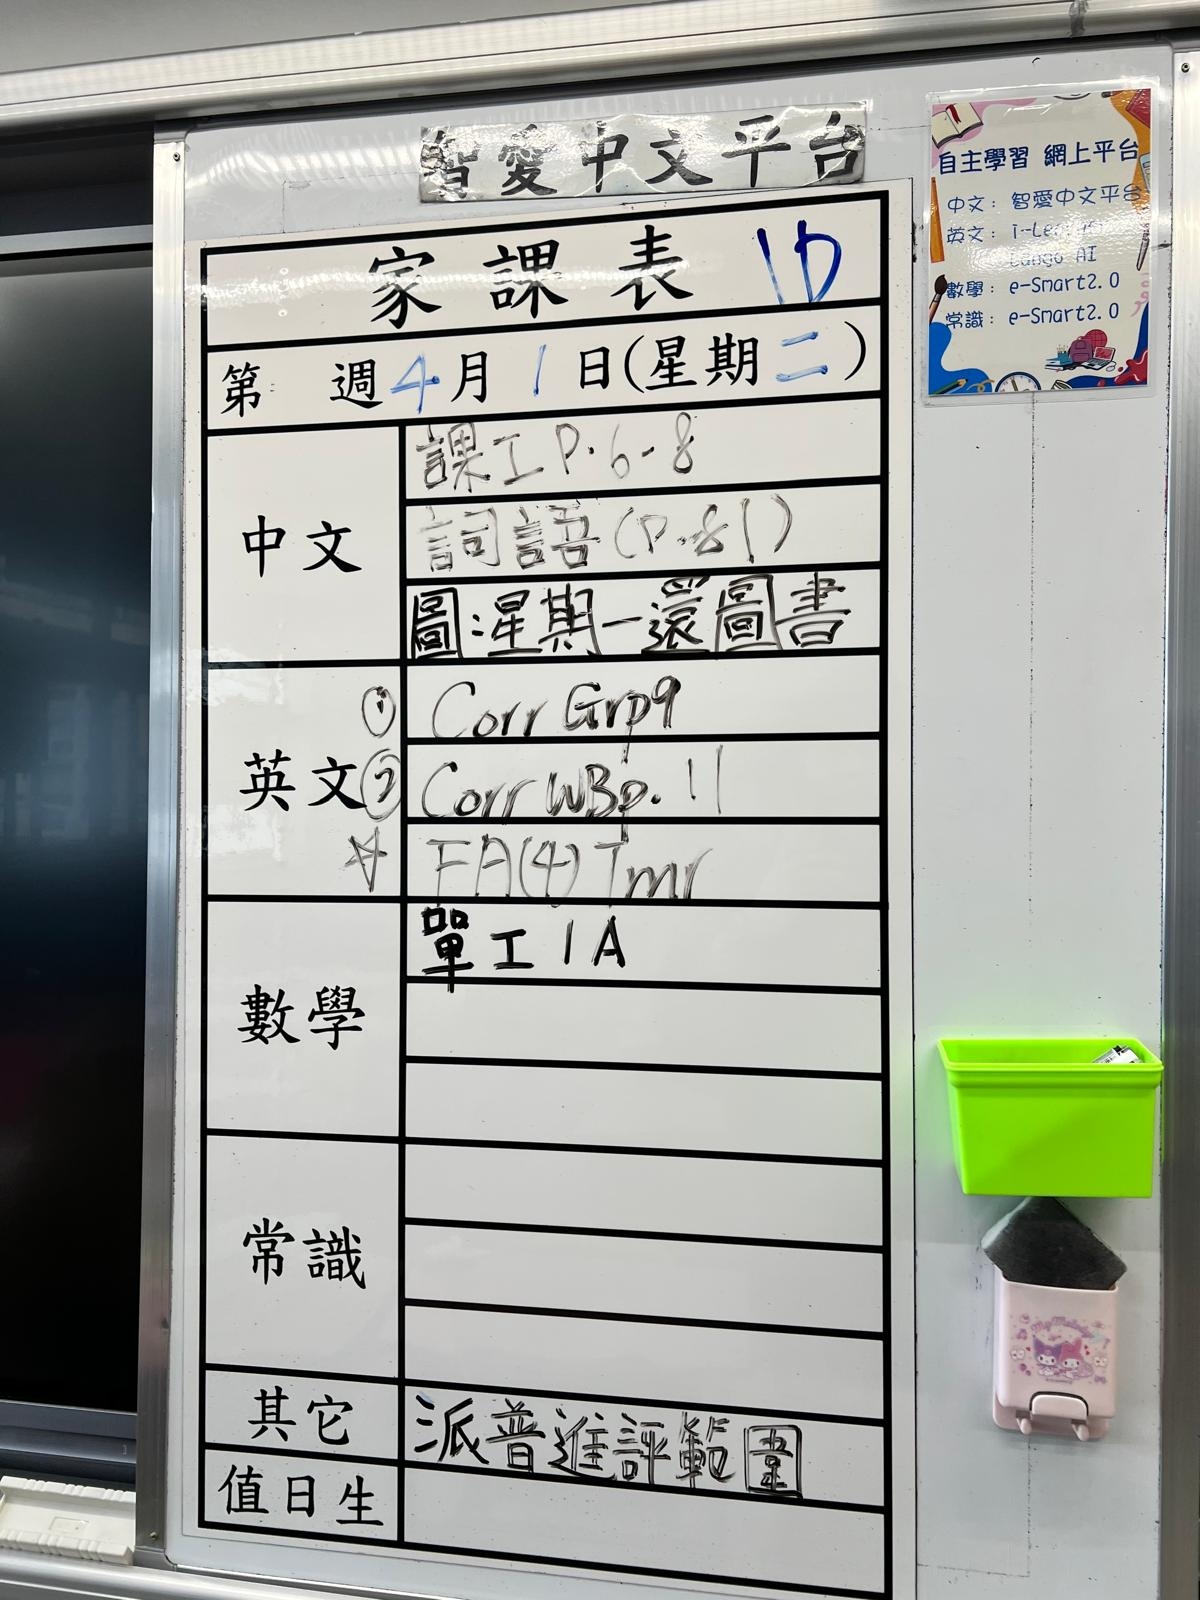 智愛中文平台
自主學習 網上平台
中文：智愛中文平台
英文：i-Learner
Lango AI
數學：e-Smart2.0
常識：e-Smart2.0
家課表 1D
第 週 4月1日(星期二)
中文
課工 P.6-8
詞語 (P.81)
圖：星期一還圖書
英文
① Corr Grp9
② Corr WBp.11
☆ FA(4) Tmr
數學
單工 1A
常識
其它
派普進評範圍
值日生